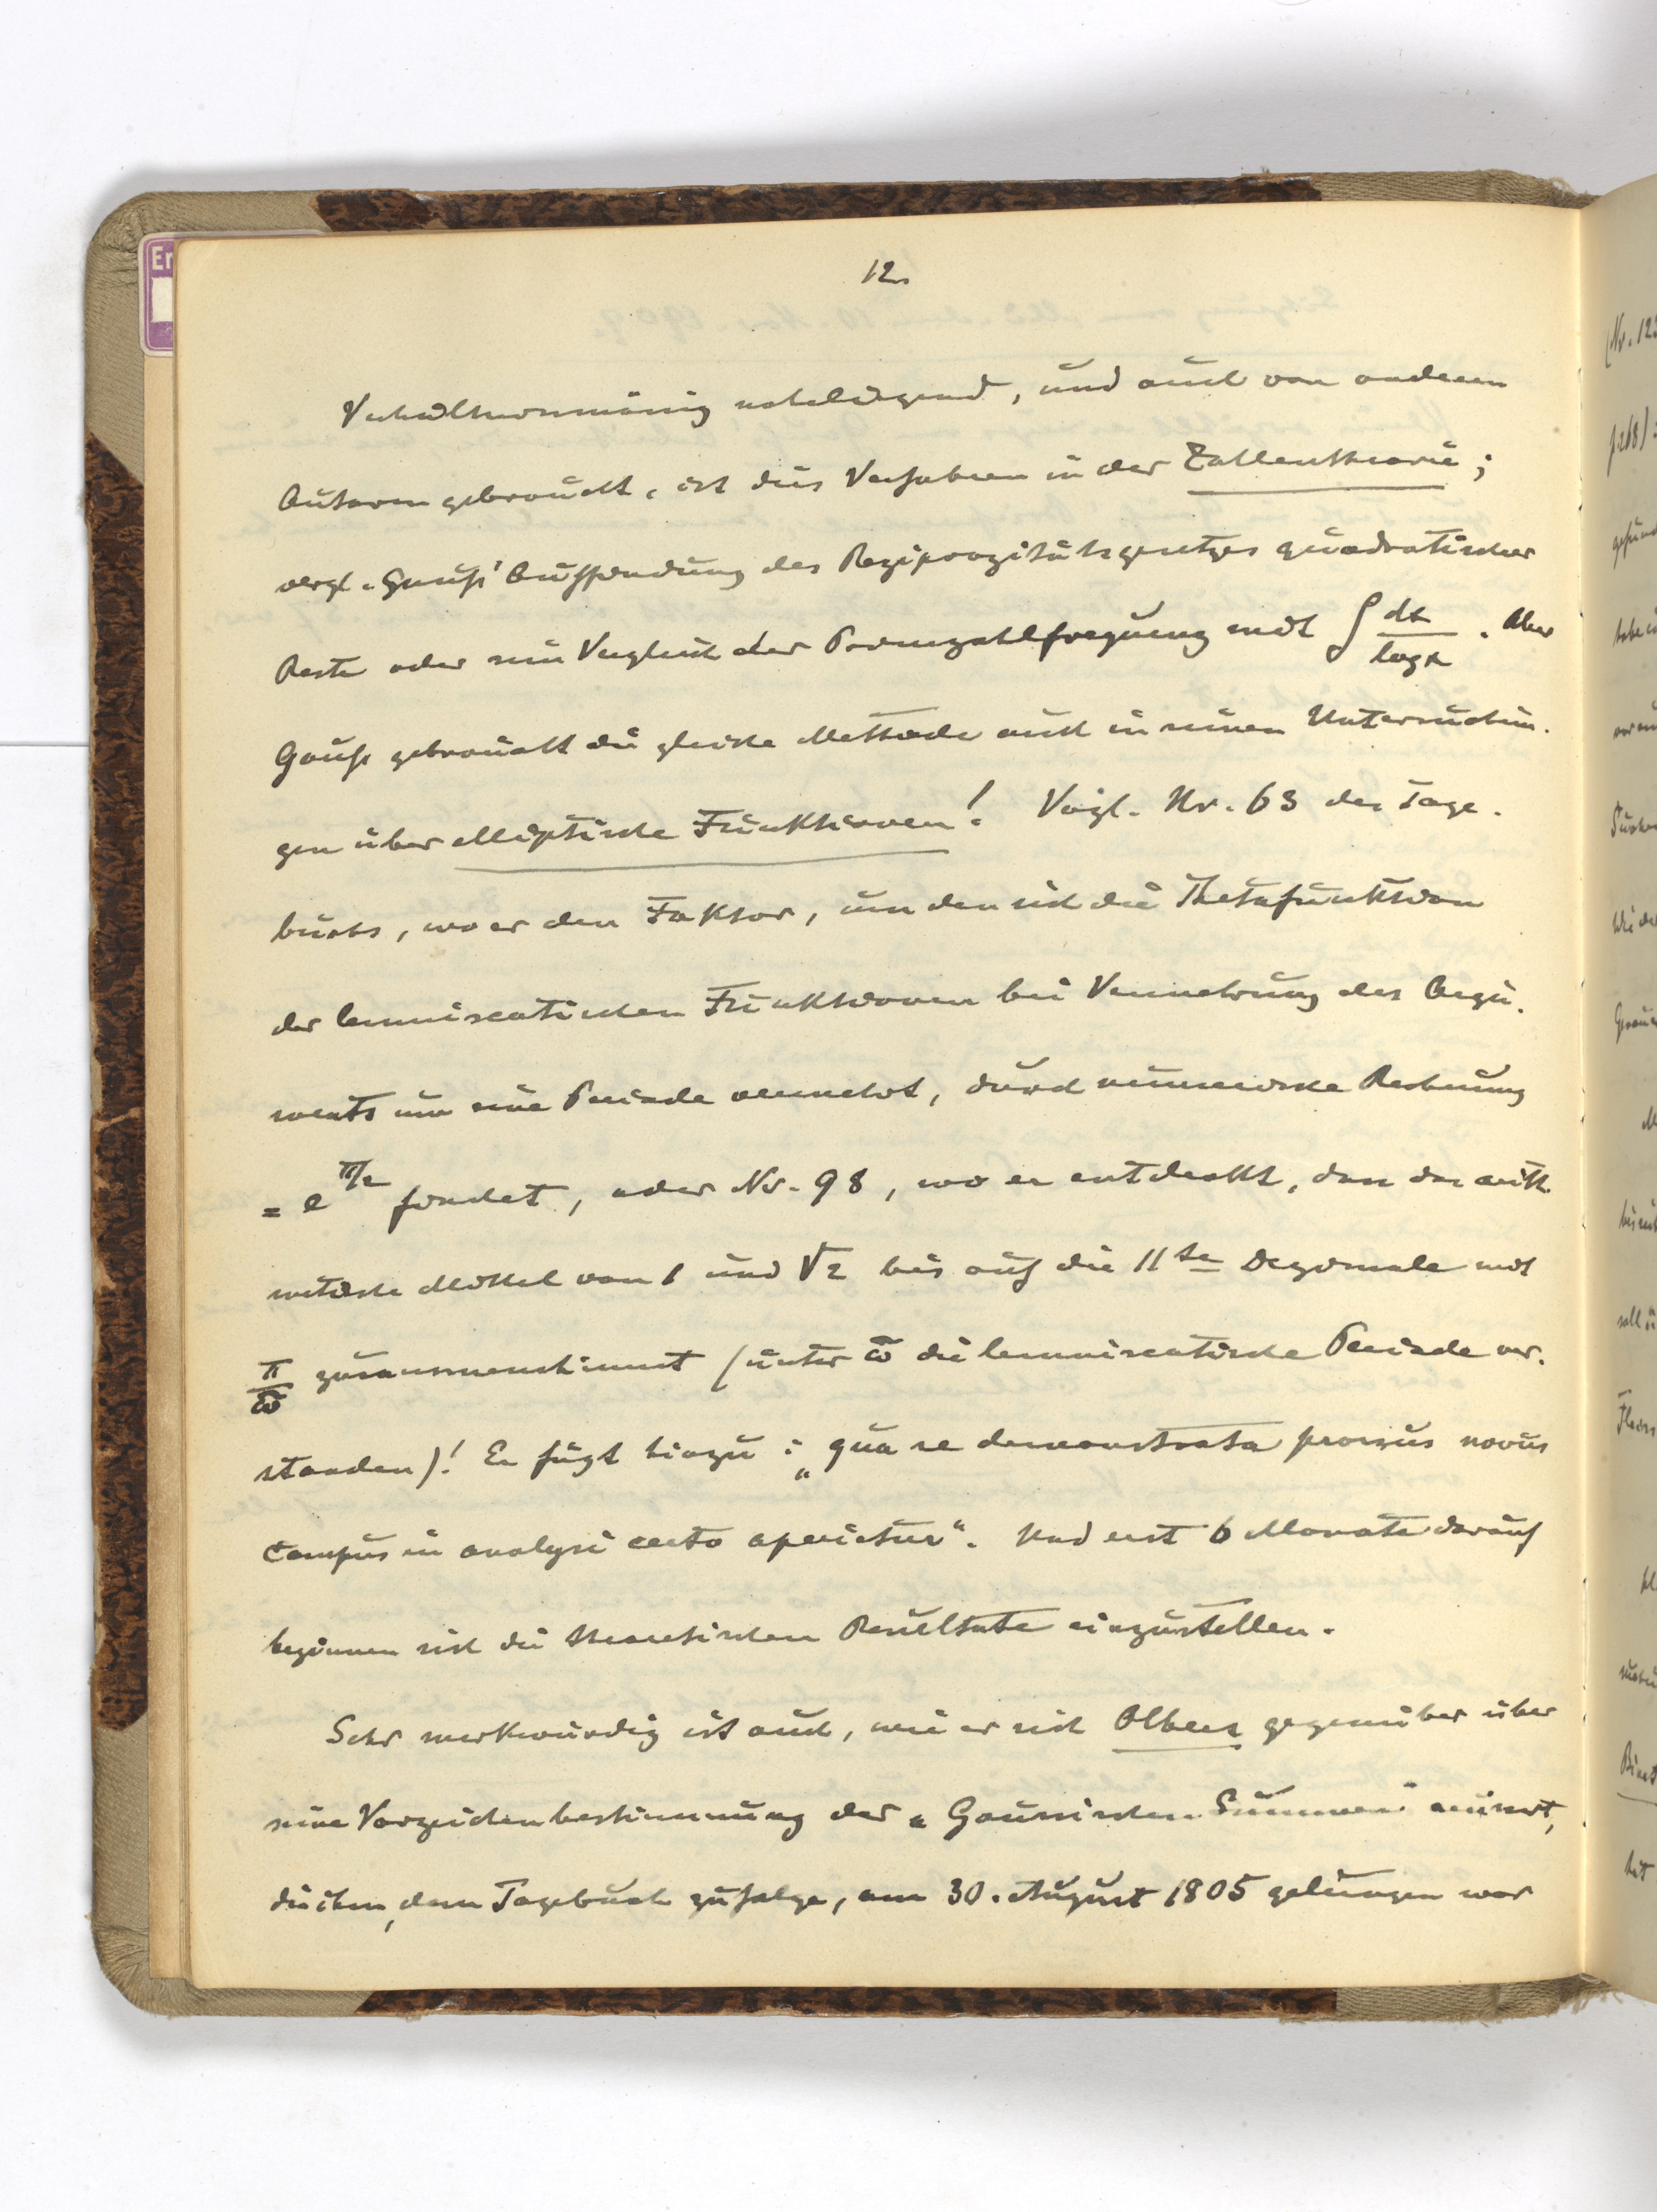 12.
Verhältnismässig naheliegend, und auch von anderen
Autoren gebraucht, ist dies Verfahren in der Zahlentheorie;
vergl. Gauß' Auffindung des Reziprozitätsgesetzes quadratischer
Reste oder sein Vergleich der Primzahlfrequenz mit ∫ dx/log x. Aber
Gauß gebraucht die gleiche Methode auch in seinen Untersuchun-
gen über elliptische Funktionen! Vergl. Nr. 63 des Tage-
buchs, wo er den Faktor, um den sich die Thetafunktion
der lemniscatischen Funktionen bei Vermehrung des Argu-
ments um eine Periode vermehrt, durch numerische Rechnung
= e^π/2 findet, oder Nr. 98, wo er entdeckt, dass das arith-
metische Mittel von 1 und √2 bis auf die 11te Dezimale mit
π/ω̃ zusammenstimmt (unter ω̃ die lemniscatische Periode ver-
standen)! Er fügt hinzu: „qua re demonstrata prorsus novus
campus in analysi certo aperietur“. Und erst 6 Monate darauf
beginnen sich die theoretischen Resultate einzustellen.
Sehr merkwürdig ist auch, wie er sich Olbers gegenüber über
seine Vorzeichenbestimmung der „Gaussischen Summen“ äussert,
die ihm, dem Tagebuch zufolge, am 30. August 1805 gelungen war